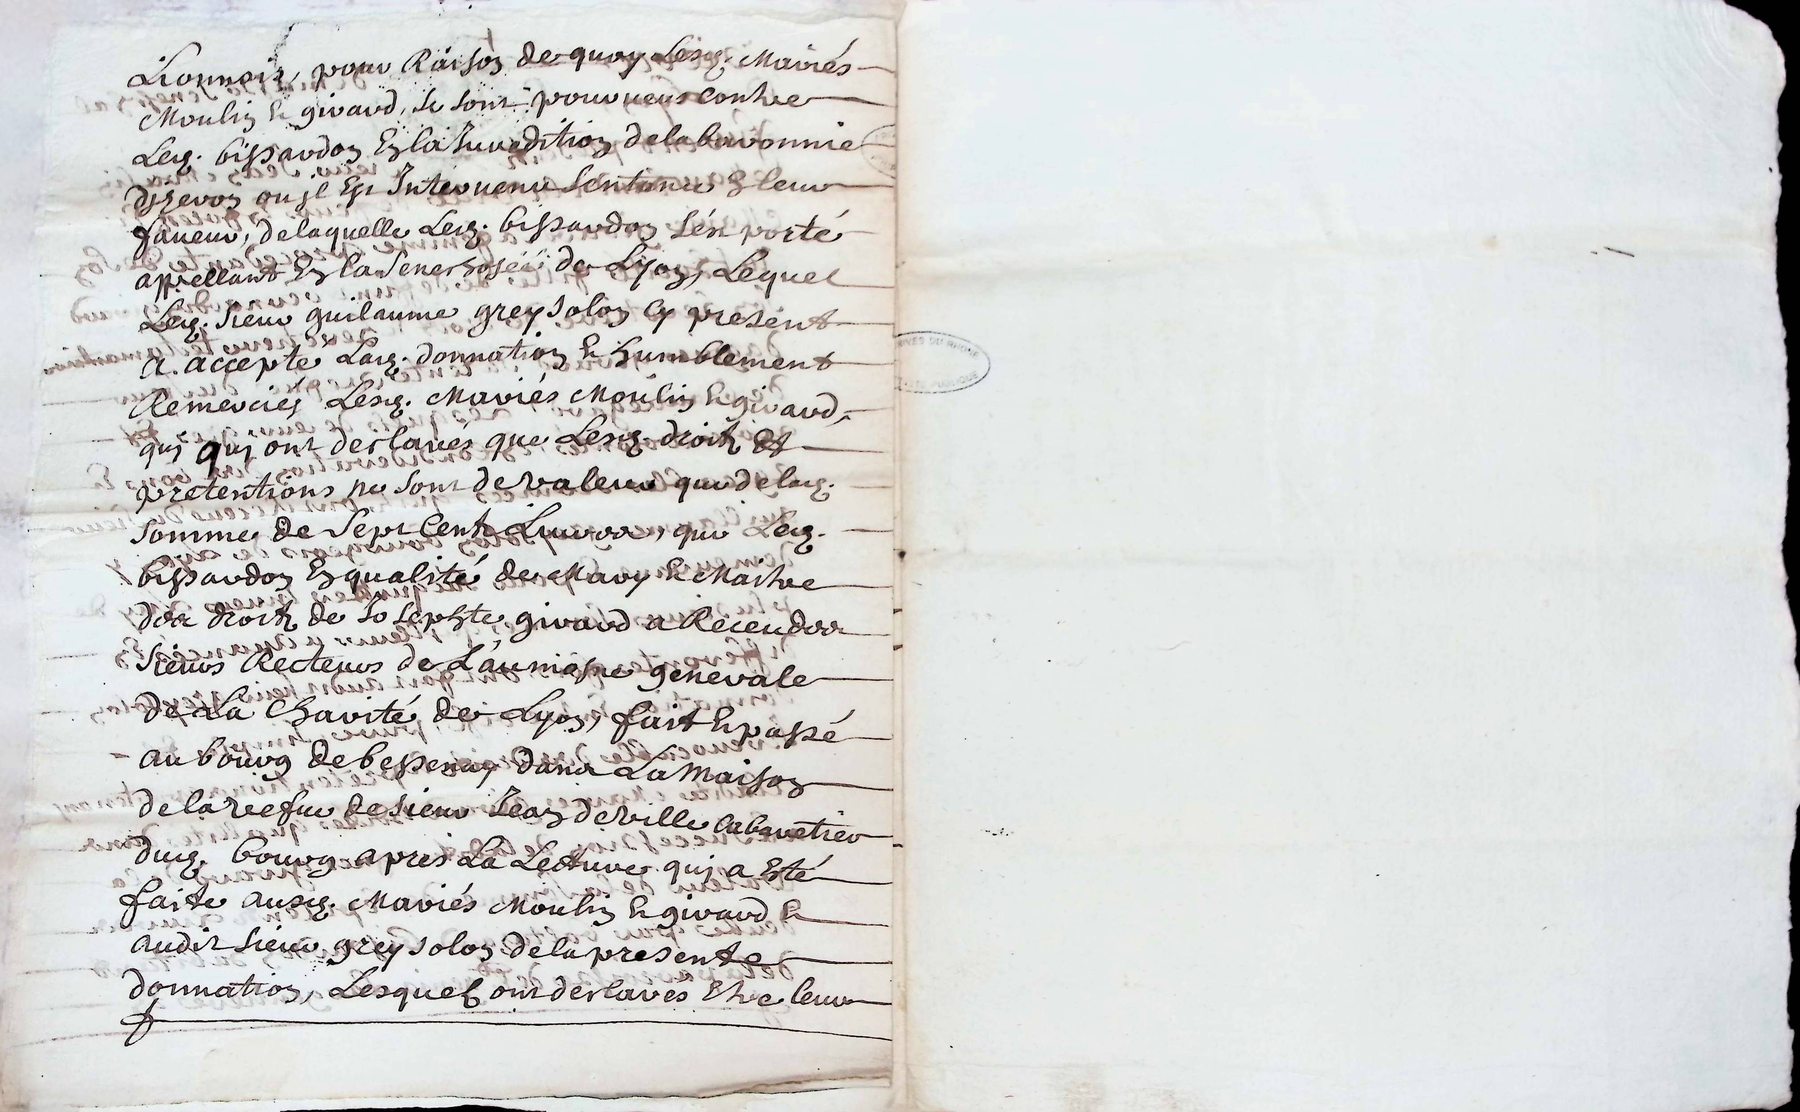 Lionnois, pour Raison de quoy Lesd. Mariés
Moulin & girard, se sont pourvueus contre
Led. bissardon En la Jurisdition de la baronnie
d'yzeron ou jl Est Intervenu Sentance En leur
faueur, de laquelle Led. bissardon s'est porté
appellant En la Senechossée de Lyon, Lequel
Led. Sieur guilaume greysolon cy présent
a accepté Lad. donnation & humblement
Remerciés Lesd. Mariés Moulin & girard,
quj quj ont desclarés que Lesd. droitz Et
pretentions ne sont de valeur que de lad.
somme de Sept Centz Liuvres, que Led.
bissardon En qualité de Mary & Maitre
des droitz de Josephte girard a Receu des
Sieurs Recteurs de L'aumosne generale
de La Charité de Lyon, fait & passé
au bourg de bessenay dans La Maison
de la vefue de sieur Jean deville Cabaretier
dud. bourg apres La Lecture quj a Esté
faite ausd. Mariés Moulin & girard &
audit sieur greysolon de la presente
donnation, Lesquelz ont desclarés Etre leur
RIVES DU RHONE